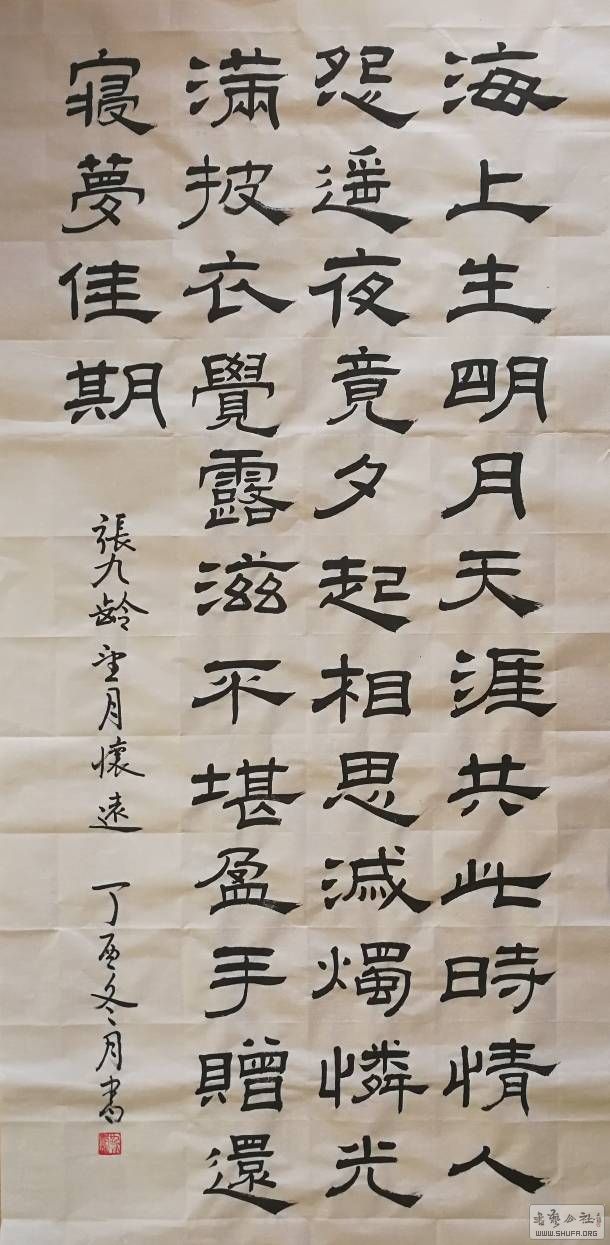 海上生明月天涯共此時情人
怨遥夜竟夕起相思滅燭憐光
滿披衣覺露滋不堪盈手贈還
寢夢佳期
張九齡望月懷遠 丁酉冬月書
書藝公社
WWW.SHUFA.ORG